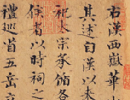 右漢西嶽華
其述自漢以来
祀太宗承循各
侯者以時祠之
禮巡省五岳立